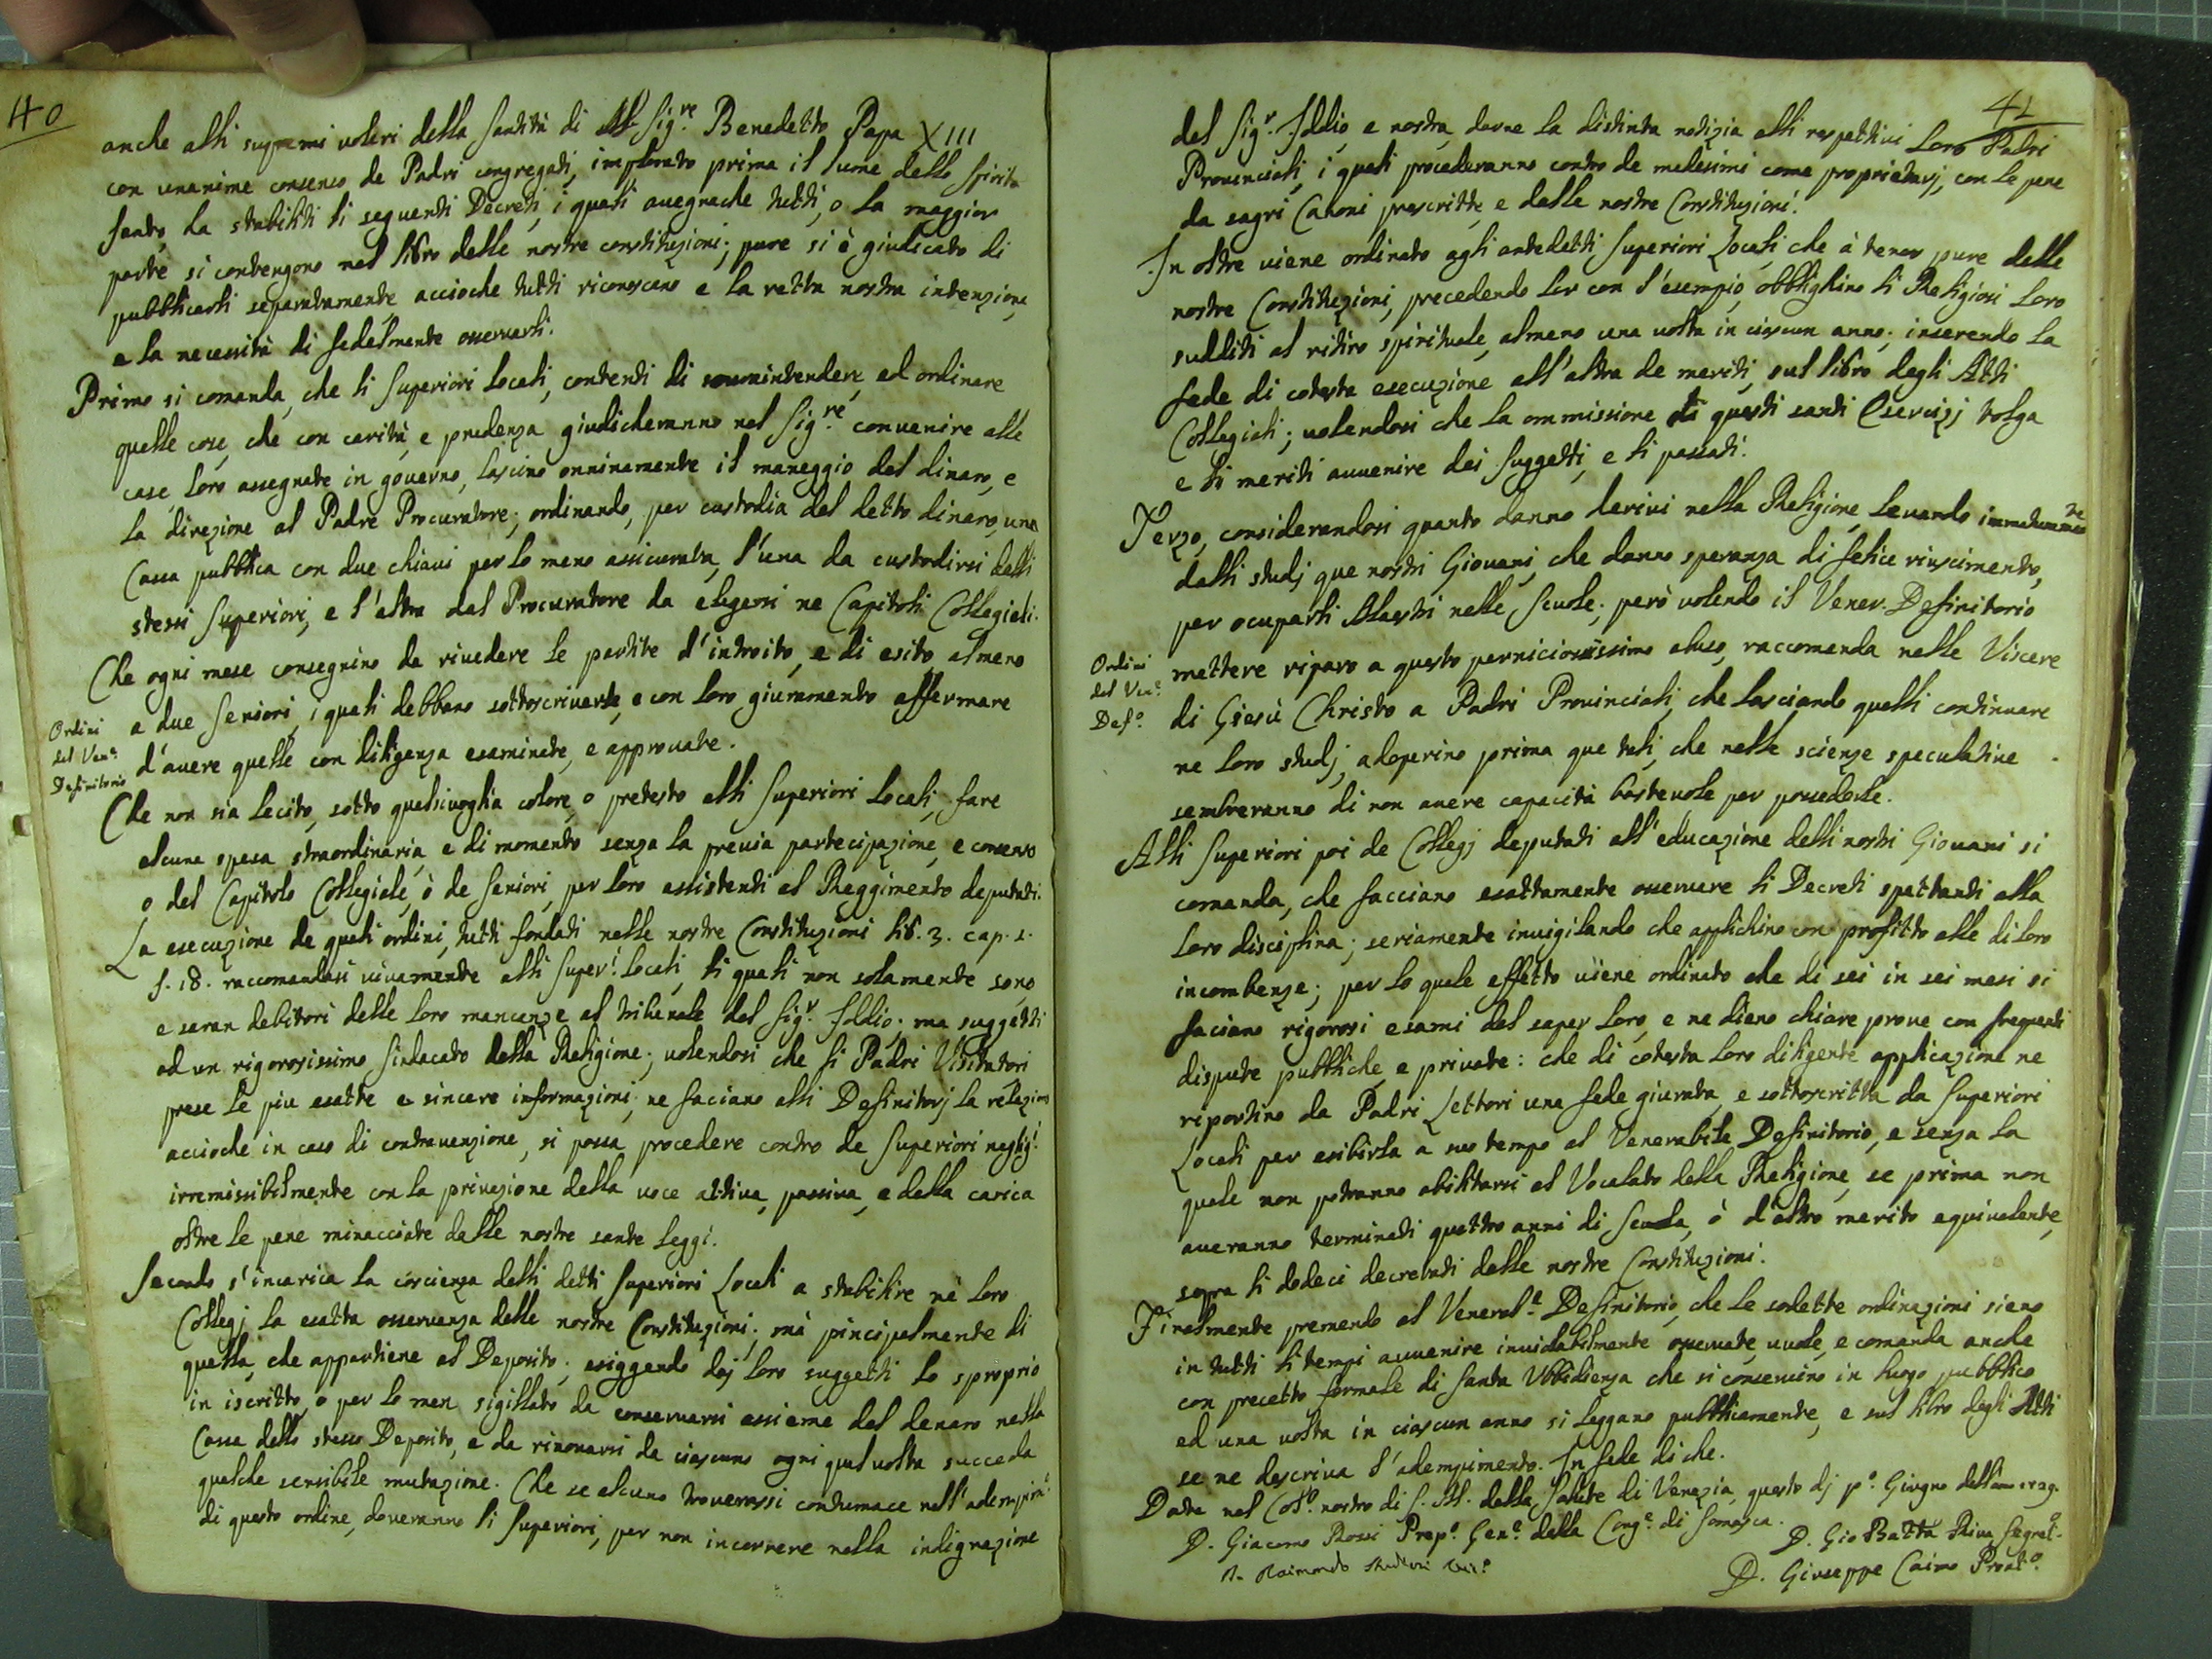 40
anche alli supremi voleri della Santità di N. Sig.re Benedetto Papa XIII
con unanime consenso de Padri congregati, implorato prima il lume dello Spirito
Santo, ha stabiliti li seguenti Decreti, i quali avegnache tutti, o la maggior
parte si contengono nel libro delle nostre constituzioni; pure si è giudicato di
pubblicarli separatamente, accioche tutti riconoscano e la retta nostra intenzione,
e la necessità di fedelmente osservarli.
Primo si comanda, che li Superiori locali, contenti di sovraintendere, ed ordinare
quelle cose, che con carità, e prudenza giudicheranno nel Sig.re convenire alle
case loro assegnate in governo, lascino onninamente il maneggio del dinaro, e
la direzione al Padre Procuratore; ordinando, per custodia del detto dinaro, una
Cassa pubblica con due chiavi per lo meno assicurata, l'una da custodirsi dalli
stessi Superiori, e l'altra dal Procuratore da elegersi ne Capitoli Collegiali.
Che ogni mese consegnino da rivedere le partite d'introito, e di esito almeno
a due Seniori, i quali debbano sottoscriverle, e con loro giuramento affermare
d'avere quelle con diligenza esaminate, e approvate.
Ordini
del Ven.e
Definitorio
Che non sia lecito, sotto qualsivoglia colore, o pretesto alli Superiori Locali, fare
alcuna spesa straordinaria, e di momento senza la previa partecipazione, e consenso
o del Capitolo Collegiale, ò de Seniori, per loro assistenti al Reggimento deputati.
La esecuzione de quali ordini, tutti fondati nelle nostre Constituzioni lib. 3. cap. 1.
§. 18. raccomandasi vivamente alli Super.i locali, li quali non solamente sono
e saran debitori delle loro mancanze al tribunale del Sig.r Iddio; ma suggetti
ad un rigorosissimo Sindacato della Religione; volendosi che li Padri Visitatori
prese le piu esatte e sincere informazioni, ne faciano alli Definitorj la relazione
accioche in caso di contravenzione, si possa procedere contro de Superiori neglig.i
irremissibilmente con la privazione della voce attiva, passiva, e della carica
oltre le pene minacciate dalle nostre sante leggi.
Secondo s'incarica la coscienza delli detti Superiori Locali a stabilire nè loro
Collegj la esatta osservanza delle nostre Constituzioni; mà pincipalmente di
quella, che appartiene al Deposito; esiggendo dai loro suggetti lo sproprio
in iscritto, o per lo men sigillato da conservarsi assieme del denaro nella
Cassa dello stesso Deposito, e da rinovarsi da ciascuno ogni qual volta succeda
qualche sensibile mutazione. Che se alcuno troverassi contumace nell'adempim.o
di questo ordine, doveranno li Superiori, per non incorrere nella indignazione
41
del Sig.r Iddio, e nostra, darne la distinta notizia alli respettivi loro Padri
Provinciali, i quali procederanno contro de medesimi come proprietarj, con le pene
da sagri Canoni prescritte, e dalle nostre Constituzioni.
In oltre viene ordinato agli antedetti Superiori Locali, che à tenor pure delle
nostre Constituzioni, precedendo lor con l'esempio, obblighino li Religiosi loro
sudditi al ritiro spirituale, almeno una volta in ciascun anno; inserendo la
fede di cotesta esecuzione all'altra de meriti, sul libro degli Atti
Collegiali; volendosi che la ommissione di questi santi Esercizj tolga
e li meriti avvenire dei suggetti, e li passati.
Terzo, considerandosi quanto danno derivi nella Religione levando immaturamente
dalli studj que nostri Giovani, che danno speranza di felice riuscimento,
per ocuparli Maestri nelle Scuole; però volendo il Vener. Definitorio
mettere riparo a questo perniciosissimo abuso, raccomanda nelle Viscere
di Giesù Christo a Padri Provinciali, che lasciando quelli continuare
ne loro studj, adoperino prima que tali, che nelle scienze speculative
sembreranno di non avere capacità bastevole per possederle.
Ordini
del Ven.e
Def.o
Alli Superiori poi de Collegj deputati all'educazione delli nostri Giovani si
comanda, che facciano esattamente osservare li Decreti spettanti alla
loro disciplina; seriamente invigilando che applichino con profitto alle di loro
incombenze; per lo quale effetto viene ordinato che di sei in sei mesi si
faciano rigorosi esami del saper loro, e ne diano chiare prove con frequenti
dispute pubbliche, e private: che di cotesta loro diligente applicazione ne
riportino da Padri Lettori una fede giurata, e sottoscritta da Superiori
Locali per esibirla a suo tempo al Venerabile Definitorio, e senza la
quale non potranno abilitarsi al Vocalato della Religione, se prima non
averanno terminati quattro anni di Scuola, ò d'altro merito equivalente,
sopra li dodeci decretati dalle nostre Constituzioni.
Finalmente premendo al Venerab.e Definitorio, che le sodette ordinazioni sieno
in tutti li tempi avvenire inviolabilmente osservate, vuole, e comanda anche
con precetto formale di Santa Ubbidienza che si conservino in luogo pubblico
ed una volta in ciascun anno si leggano pubblicamente, e sul libro degli Atti
se ne descriva l'adempimento. In fede di che.
Date nel Coll.o nostro di S. M. della Salute di Venezia, questo dj p.o Giugno dell'anno 1729.
D. Giacomo Rossi Prep.o Gen.e della Cong.e di Somasca.
D. Gio Batta Riva Segret.o
D. Raimondo
D. Giuseppe Caimo Proat.o